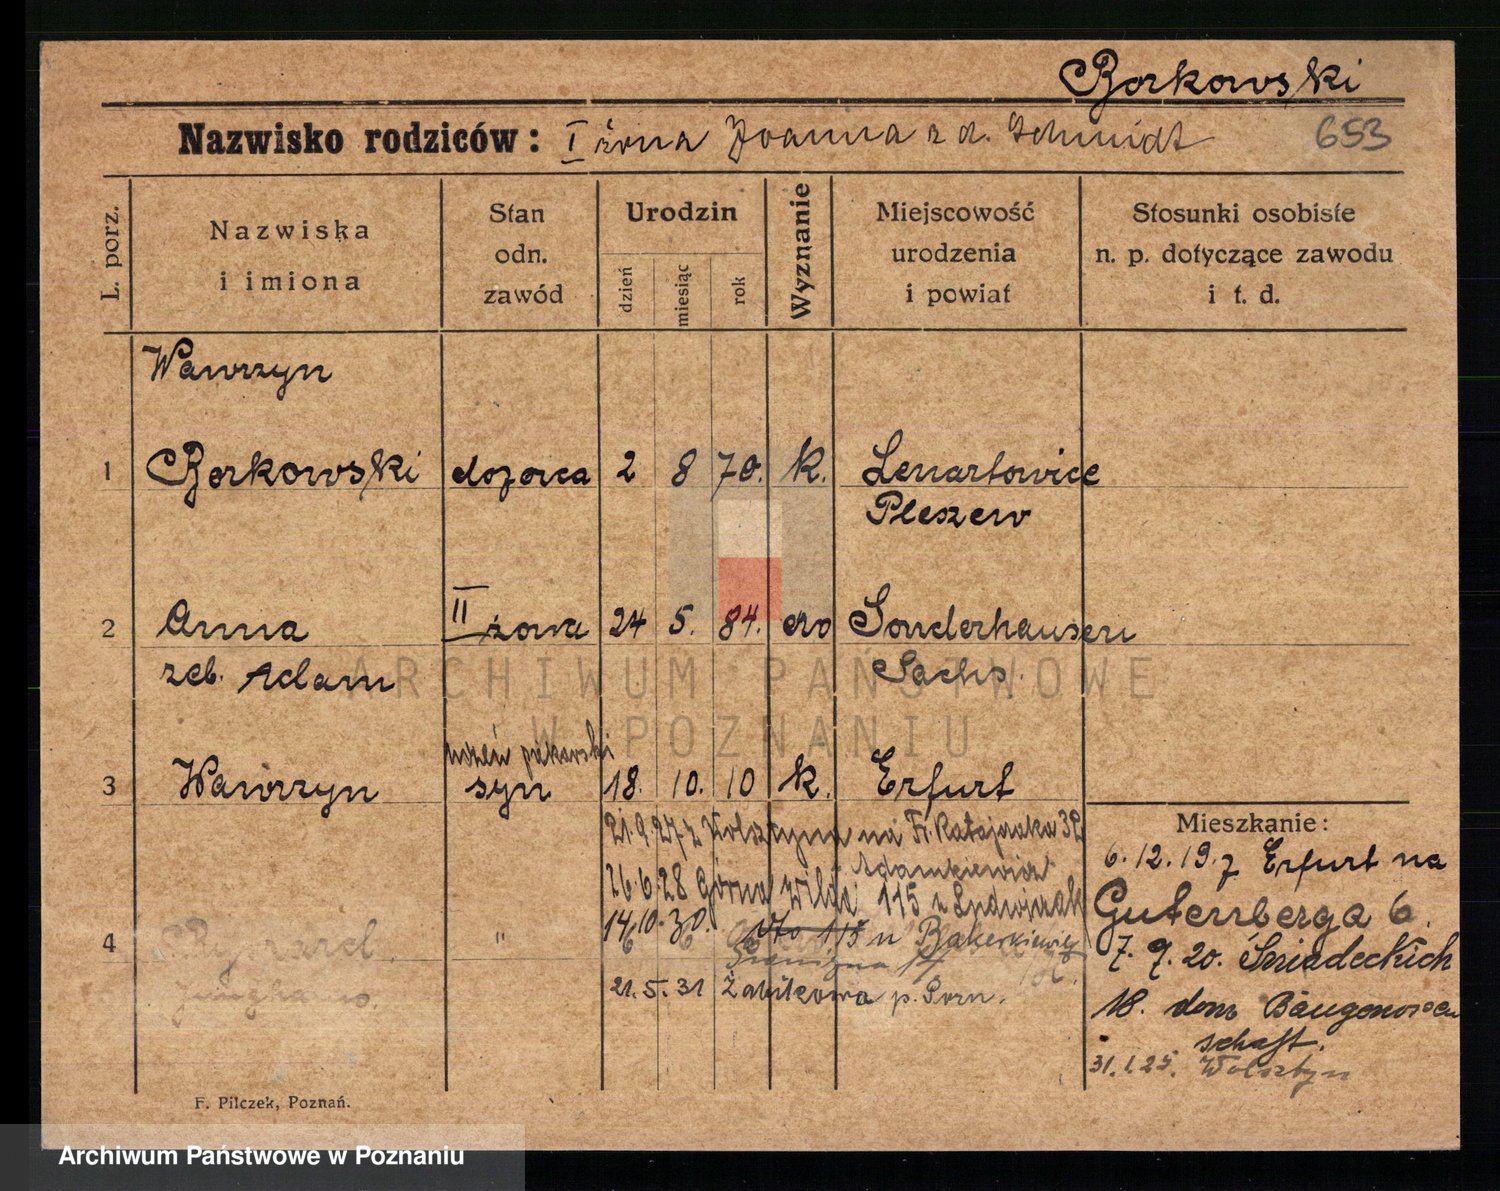 Borkowski
Nazwisko rodziców: I żona Joanna z d. Schmidt 653
L. porz.
Nazwiska i imiona
Stan odn. zawód
Urodzin
dzień
miesiąc
rok
Wyznanie
Miejscowość urodzenia i powiat
Stosunki osobiste n. p. dotyczące zawodu i t. d.
Wawrzyn
1 Borkowski dozorca 2 8 70. k. Lenartowice
Pleszew
2 Anna II żona 24 5. 84. ew Sonderhausen
zeb. Adam Sachs.
uczeń piekarski
3 Wawrzyn syn 18. 10. 10 k. Erfurt
21.9.27 z Wolsztyna na Fr. Ratajczaka 32
Adamkiewicz
26.6.28 Górna Wilda 115 u Ludwiczak
4 " 14.10.30. u
21.5.31 Żabikowo p. Pozn.
Mieszkanie:
6.12.19. z Erfurt na
Gutenberga 6.
7. 9. 20. Śniadeckich
18. dom Baugenossen
schaft.
31.1.25. Wolsztyn
F. Pilczek, Poznań.
ARCHIWUM PAŃSTWOWE
W POZNANIU
Archiwum Państwowe w Poznaniu